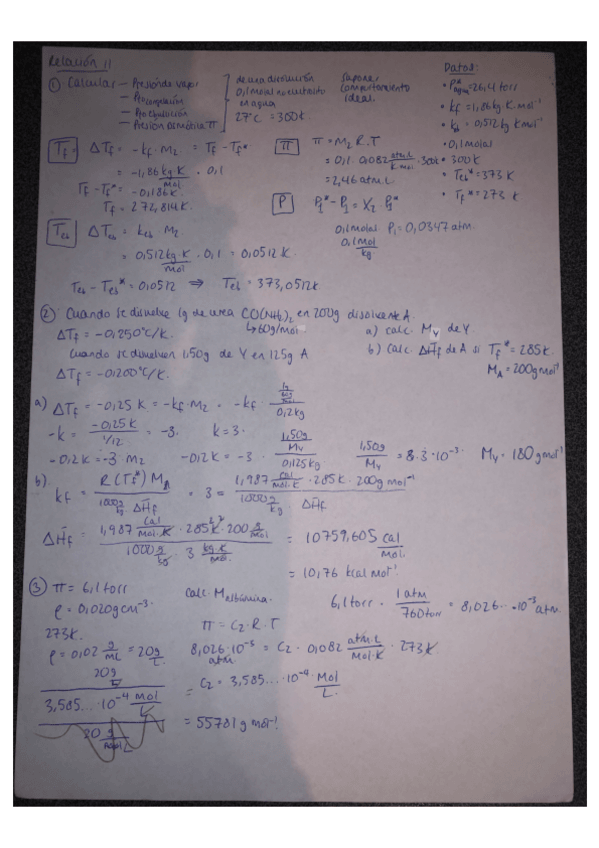 Relación 11
① Calcular — Presión de vapor
— Pto congelación
— Pto ebullición
— Presión osmótica π
de una disolución
0,1 molal no electrolito
en agua
27°C = 300K
suponer
comportamiento
ideal.
Datos:
• P*agua = 26,4 torr
• kf = 1,86 kg·K·mol⁻¹
• keb = 0,512 kg K mol⁻¹
• 0,1 molal
• 300K
• Teb* = 373 K
• Tf* = 273 K
Tf ΔTf = -kf · m₂ = Tf - Tf*
= -1,86 kg K/mol · 0,1
Tf - Tf* = -0,186K
Tf = 272,814K
π π = M₂ R.T
= 0,1 · 0,082 atm L/K mol · 300K
= 2,46 atm L
P P₁* - P₁ = X₂ P₁*
0,1 molal P₁ = 0,0347 atm.
0,1 mol/kg
Teb ΔTeb = keb · M₂
= 0,512 kg·K/mol · 0,1 = 0,0512 K
Teb - Teb* = 0,0512 ⇒ Teb = 373,0512K
② Cuando se disuelve 1g de urea CO(NH₂)₂ en 200g disolvente A.
↳ 60g/mol
ΔTf = -0,250°C/K.
Cuando se disuelven 1,50g de Y en 125g A
ΔTf = -0,200°C/K.
a) calc. My de Y
b) calc. ΔHf de A si Tf* = 285K.
MA = 200g mol⁻¹
a) ΔTf = -0,25 K = -kf · m₂ = -kf · (1g / 60g/mol) / 0,2kg
-k = -0,25K / 1/12 = -3. k = 3.
-0,2K = -3 · m₂ -0,2K = -3 · (1,50g / My) / 0,125kg 1,50g / My = 8.3 · 10⁻³ My = 180 g mol⁻¹
b) kf = R(Tf*) MA / 1000 g/kg ΔHf = 3 = 1,987 cal/mol·K · 285K · 200g mol⁻¹ / 1000 g/kg ΔHf
ΔHf = 1,987 cal/mol·K · 285² K² · 200 g/mol / 1000 g/kg · 3 kg·K/mol = 10759,605 cal/mol
= 10,76 kcal mol⁻¹
③ π = 6,1 torr
ρ = 0,020 g cm⁻³
273K.
calc. Malbúmina.
6,1 torr · 1 atm / 760 torr = 8,026... · 10⁻³ atm.
π = C₂ · R · T
ρ = 0,02 g/mL = 20 g/L
8,026 · 10⁻³ atm = C₂ · 0,082 atm·L/mol·K · 273K
= C₂ = 3,585... · 10⁻⁴ mol/L
20 g/L / 3,585... · 10⁻⁴ mol/L
= 55781 g mol⁻¹